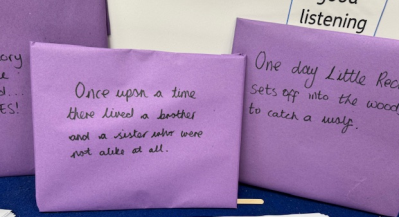 good
listening
ory
ES!
Once upon a time
there lived a brother
and a sister who were
not alike at all.
One day Little Red
sets off into the wood
to catch a wolf.